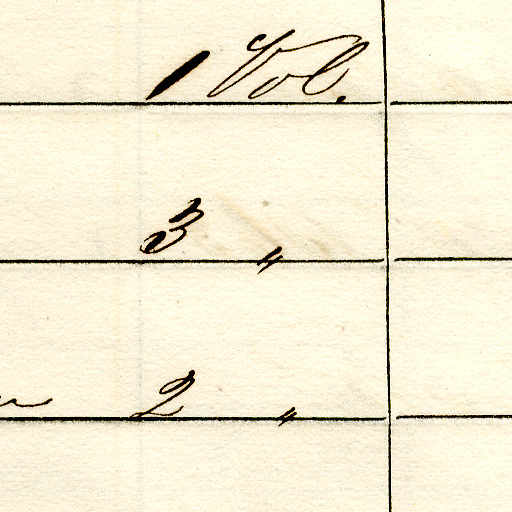 1 Vol.
3 "
2 "